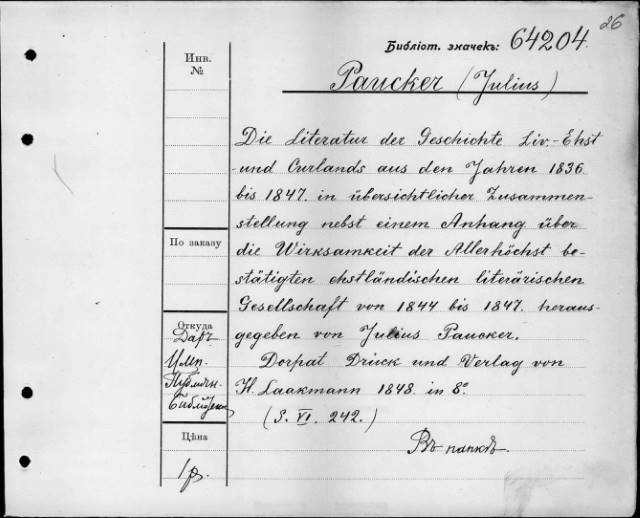 26
Библіот. значекъ: 64204.
Инв.
№
Paucker (Julius)
Die Literatur der Geschichte Liv- Ehst
-und Curlands aus den Jahren 1836
bis 1847. in übersichtlicher Zusammen-
stellung nebst einem Anhang über
die Wirksamkeit der Allerhöchst be-
stätigten ehstländischen literärischen
Gesellschaft von 1844 bis 1847. heraus-
gegeben von Julius Paucker.
Dorpat Druck und Verlag von
H. Laakmann 1848. in 8º
(S. VI. 242.)
Въ папкѣ.
По заказу
Откуда
Даръ
Имп.
Публичн.
Библіотеки
Цѣна
1 р.